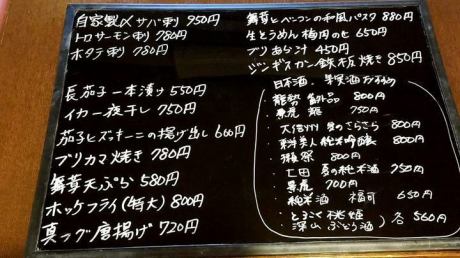 自家製〆サバ刺 950円
トロサーモン刺 780円
ホタテ刺 780円
長茄子一本漬け 550円
イカ一夜干し 750円
茄子とズッキーニの揚げ出し 600円
ブリカマ焼き 780円
舞茸天ぷら 580円
ホッケフライ(特大) 800円
真フグ唐揚げ 720円
舞茸とベーコンの和風パスタ 880円
生とうめん梅肉のせ 650円
ブリあら汁 450円
ジンギスカン鉄板焼き 850円
日本酒、果実酒おすすめ
・能勢 800円
750円
・大信州 夏のさらさら 800円
・純米吟醸 800円
・獺祭 800円
・七田 夏の純米酒 750円
700円
・純米酒 福司 650円
・とろこく桃姫
・深山ぶどう酒 各560円